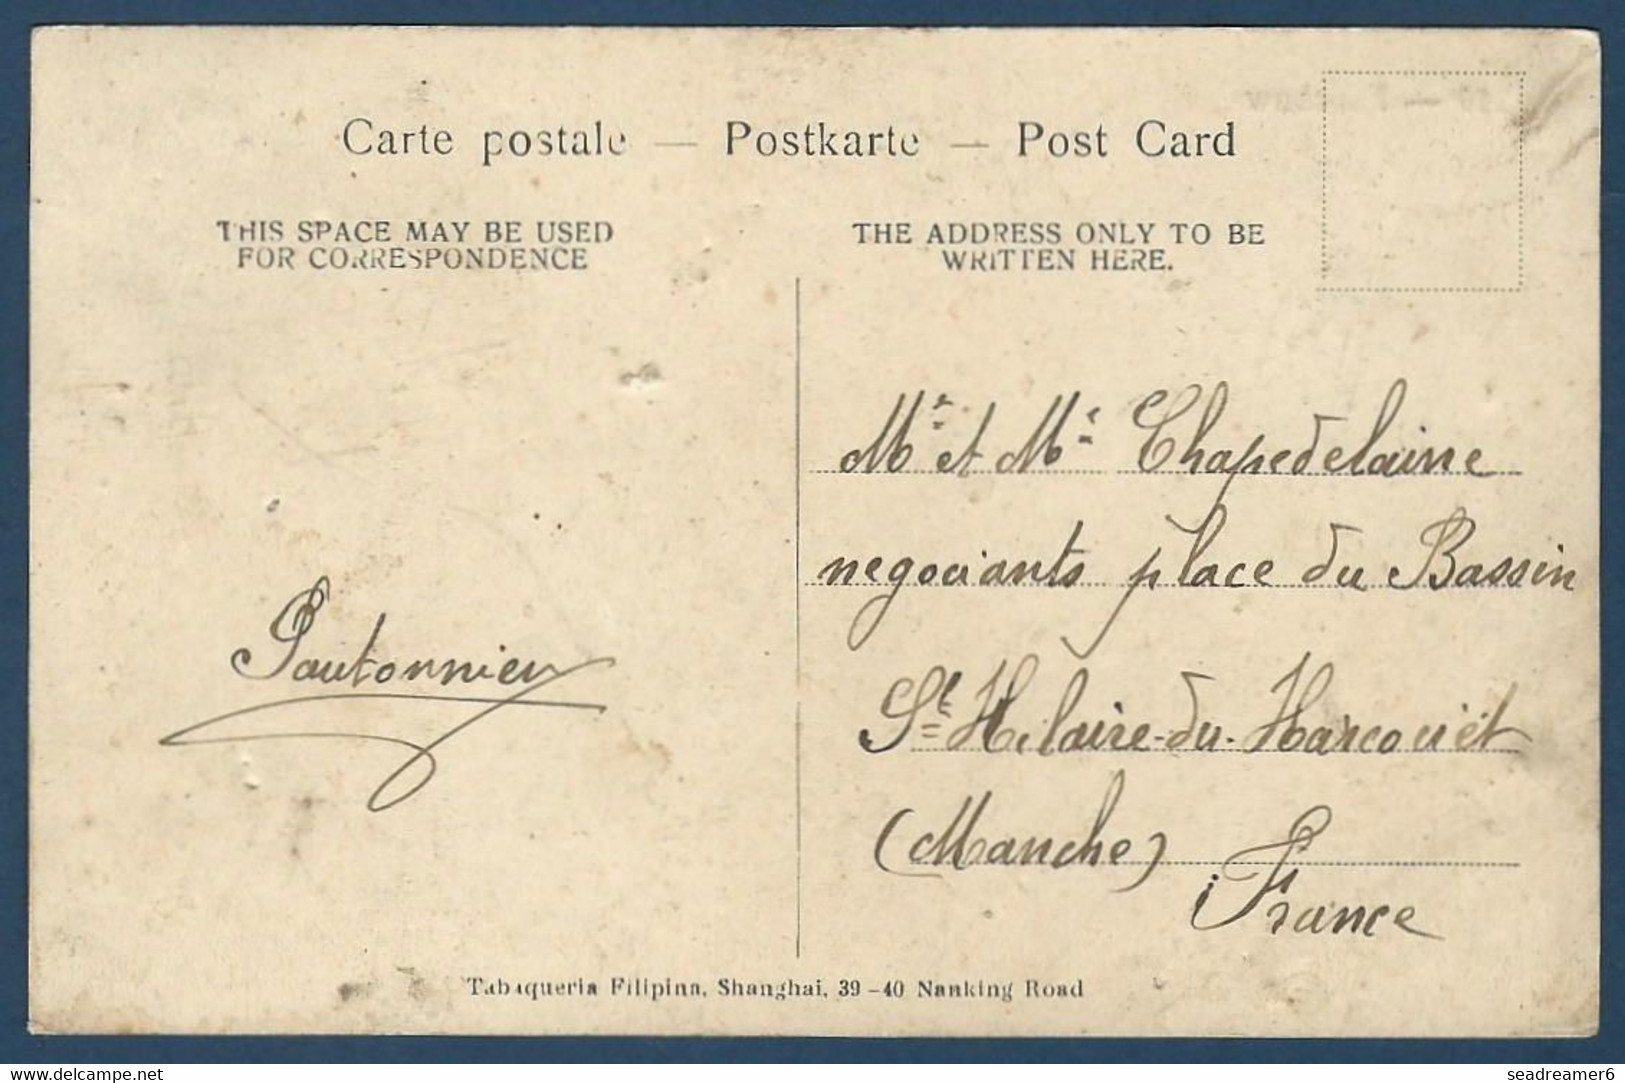 Carte postale — Postkarte — Post Card
THIS SPACE MAY BE USED
FOR CORRESPONDENCE
THE ADDRESS ONLY TO BE
WRITTEN HERE.
Mr et Me Chapedelaine
negociants place du Bassin
St Hilaire-du-Harcouët
(Manche)
France
Pautonnier
Tabaqueria Filipina, Shanghai, 39-40 Nanking Road
www.delcampe.net
seadreamer6